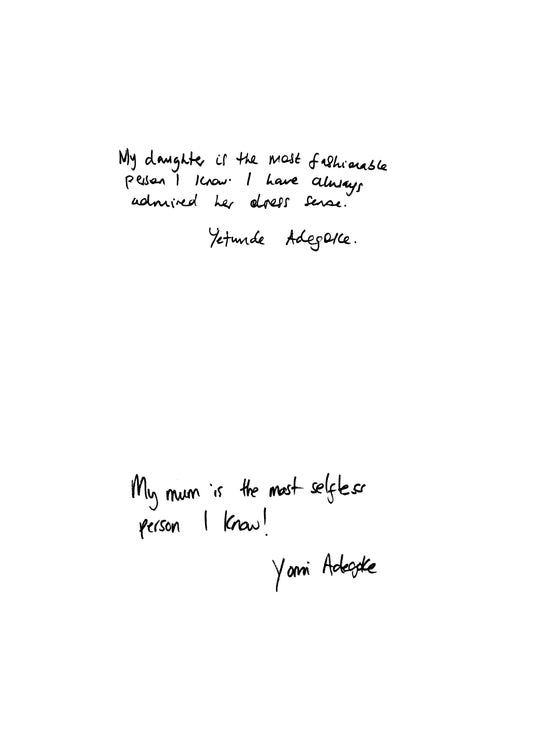 My daughter is the most fashionable
person I know. I have always
admired her dress sense.
Yetunde Adegoke.
My mum is the most selfless
person I know!
Yomi Adegoke